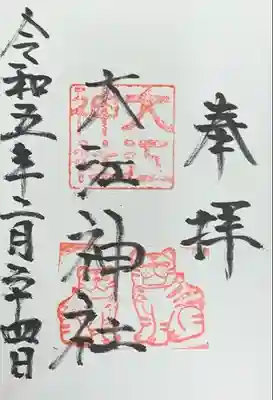 奉拝
大江神社
大江
神社
令和五年二月二十四日